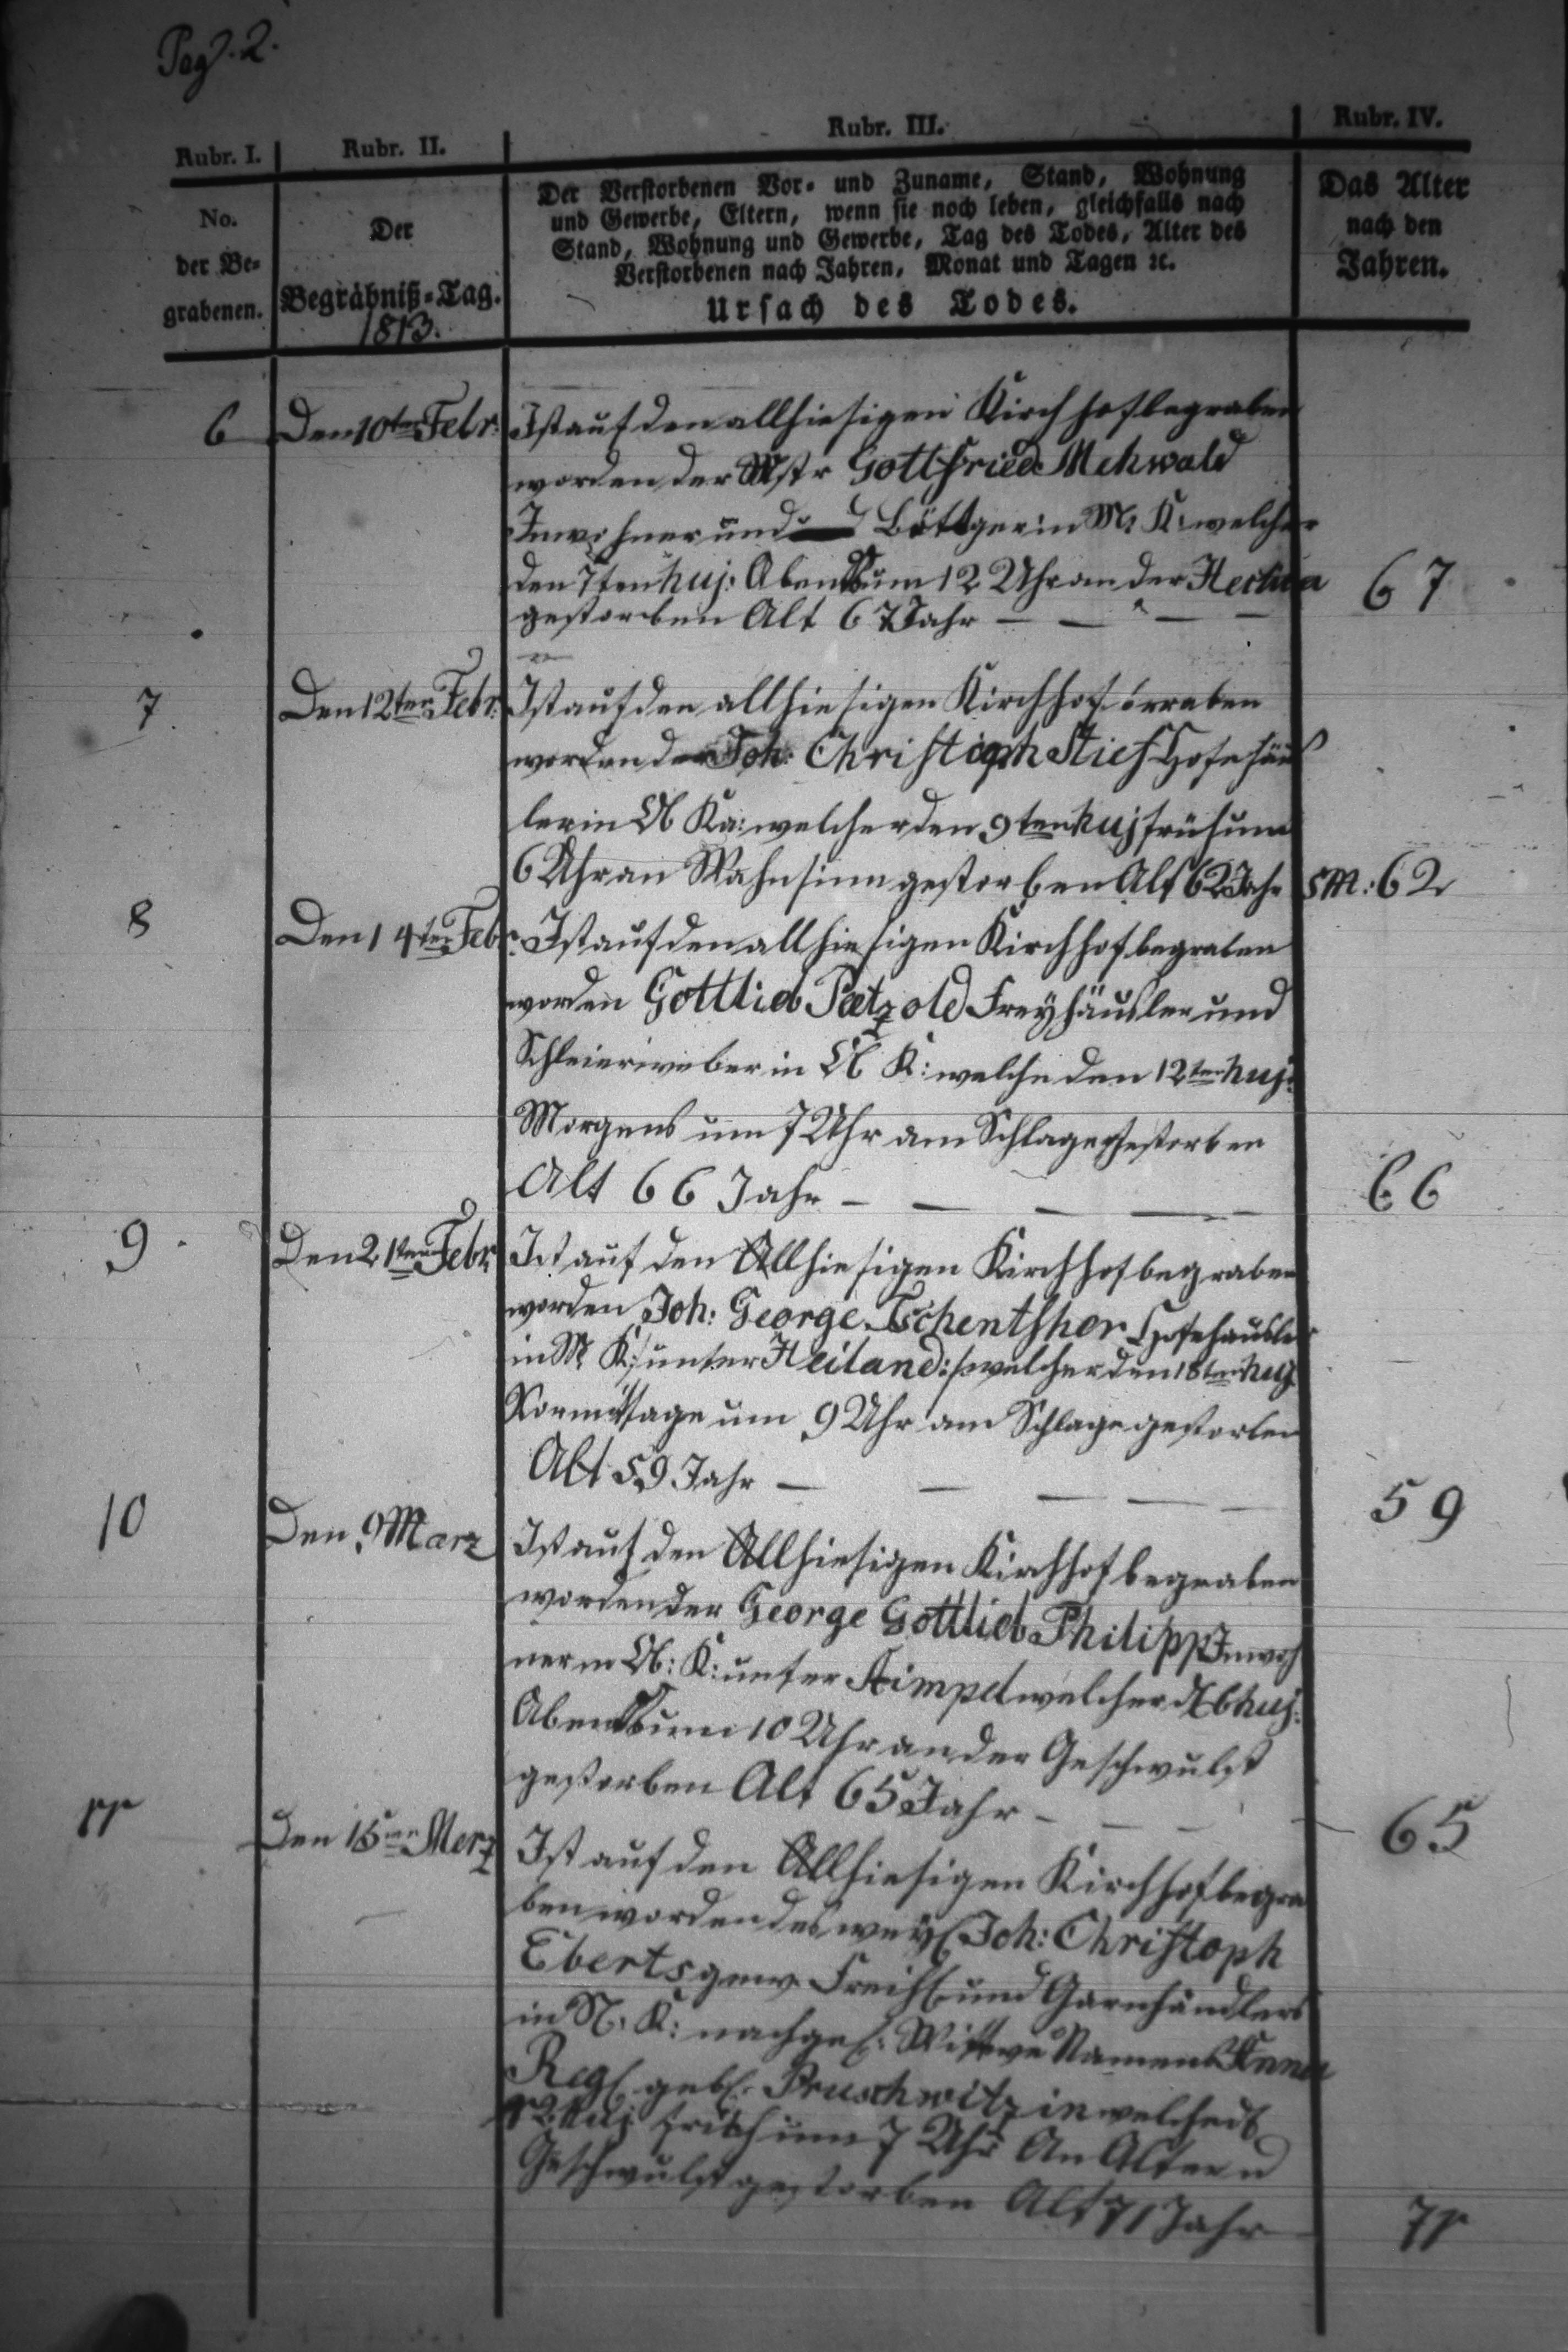 Pag. 2.
Rubr. I. Rubr. II. Rubr. III. Rubr. IV.
No.
der Be-
grabenen.
Der
Begräbniß-Tag.
1813.
Der Verstorbenen Vor- und Zuname, Stand, Wohnung
und Gewerbe, Eltern, wenn sie noch leben, gleichfalls nach
Stand, Wohnung und Gewerbe, Tag des Todes, Alter des
Verstorbenen nach Jahren, Monat und Tagen ꝛc.
Ursach des Todes.
Das Alter
nach den
Jahren.
6 Den 10ten Febr. Ist auf den allhiesigen Kirchhof begraben
worden der Mstr Gottfried Mehwald
Inwohner und Böttger in M. K. welcher
den 7ten huj: Abends um 12 Uhr an der Hectica
gestorben Alt 67 Jahr 67
7 Den 12ten Febr. Ist auf den allhiesigen Kirchhof
worden der Joh: Christoph Stief Hofehäus
ler in K: welcher den 9ten huj früh um
6 Uhr an Wahnsinn gestorben Alt 62 Jahr 5 M: 62
8 Den 14ten Febr. Ist auf den allhiesigen Kirchhof begraben
worden Gottlieb Paetzold Freyhäusler und
Schleierweber in K: welche den 12ten huj:
Morgens um 7 Uhr am Schlage gestorben
Alt 66 Jahr 66
9 Den 21ten Febr. Ist auf den Allhiesigen Kirchhof begraben
worden Joh: George Tschentsher Hofehäusler
in M. K: unter Heiland: welcher den 18ten huj
Vormittage um 9 Uhr am Schlage gestorben
Alt 59 Jahr 59
10 Den 9 Marz Ist auf den Allhiesigen Kirchhof begraben
worden der George Gottlieb Philipp Inwoh
ner in K: unter welcher huj:
Abends um 10 Uhr an der Geschwulst
gestorben Alt 65 Jahr 65
11 Den 15ten Merz Ist auf den Allhiesigen Kirchhof begra
ben worden des weyl Joh: Christoph
Eberts gew. Freih. und Garnhändlers
in N. K: nachgel. Wittwe Namens Anna
Reg. geb. Pruschwitzin welche
12 huj früh um 7 Uhr An Alter u
Geschwulst gestorben Alt 71 Jahr 71